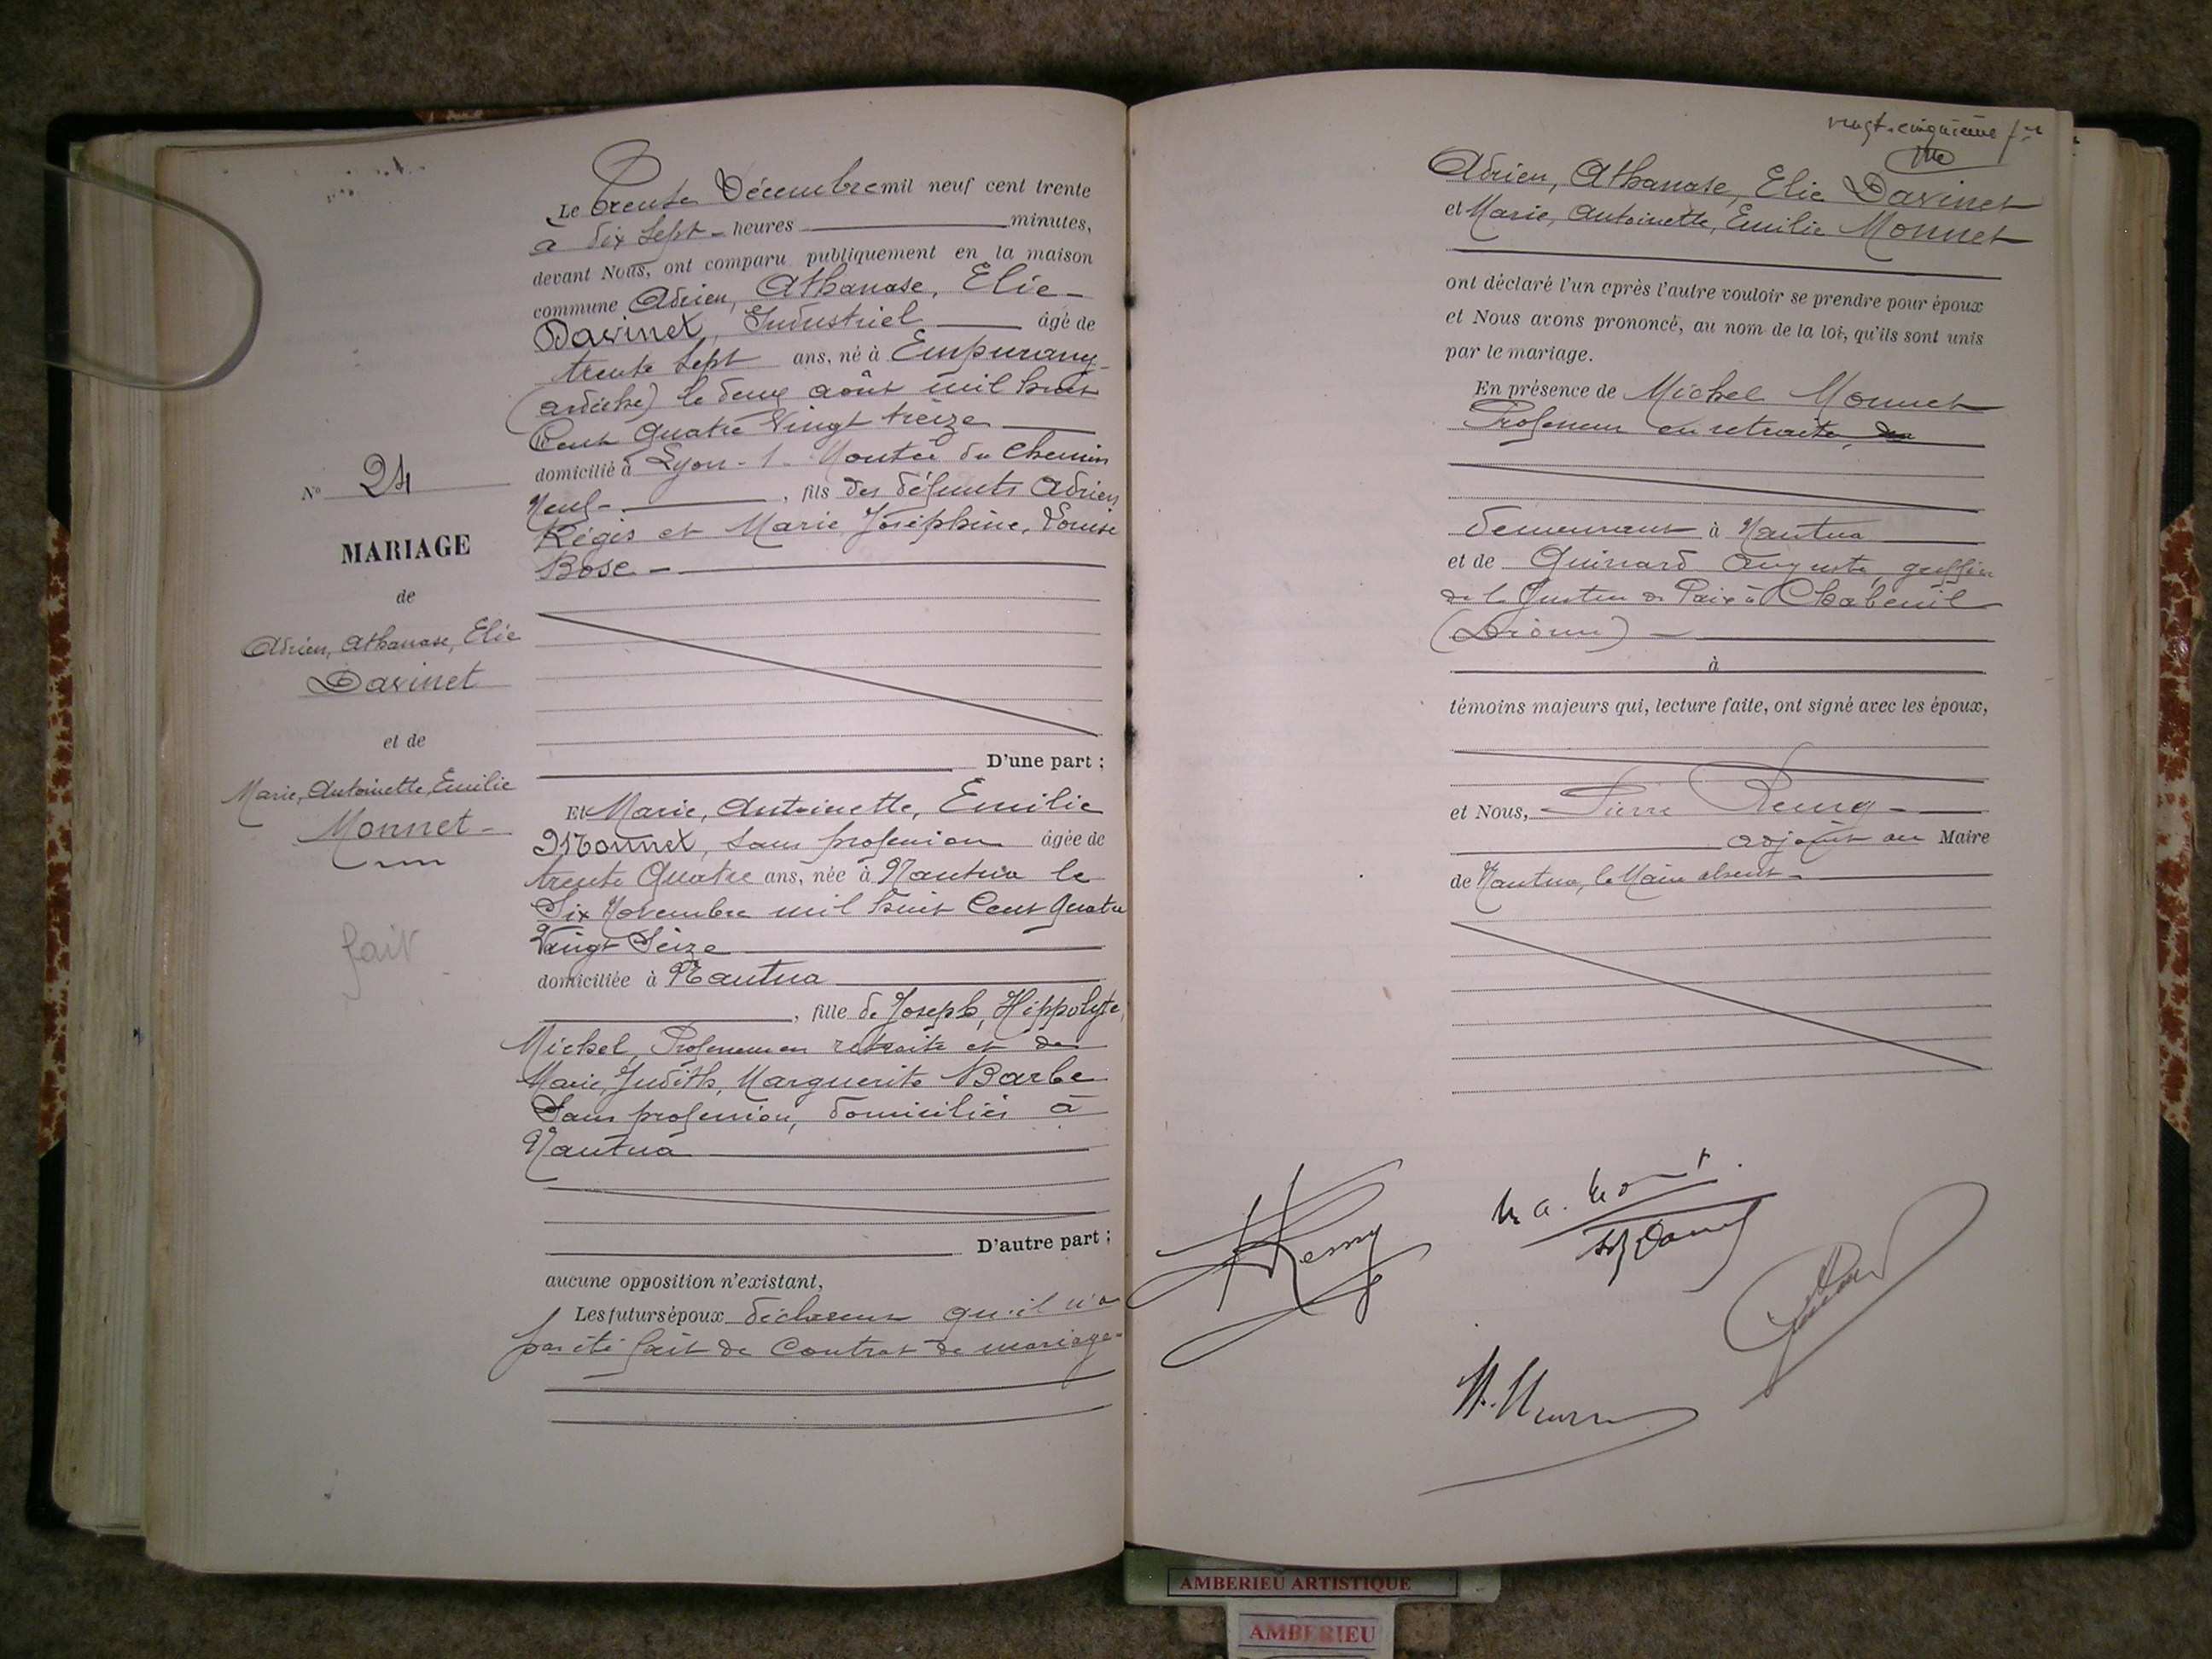 N° 24
MARIAGE
de
Adrien, Athanase, Elie
Davinet
et de
Marie, Antoinette, Emilie
Monnet
fait
Le trente Décembre mil neuf cent trente
à dix sept heures minutes,
devant Nous, ont comparu publiquement en la maison
commune Adrien, Athanase, Elie
Davinet, Industriel âgé de
trente sept ans, né à Empurany
(ardèche) le deux août mil huit
Cent Quatre Vingt treize
domicilié à Lyon - 1 - Montée du Chemin
Neuf - , fils des défunts Adrien
Régis et Marie, Joséphine, Louise
Bose -
D'une part ;
Et Marie, Antoinette, Emilie
Monnet, sans profession âgée de
trente Quatre ans, née à Nantua le
Six Novembre mil huit Cent Quatre
Vingt Seize
domiciliée à Nantua
, fille de Joseph, Hippolyte,
Michel, Professeur en retraite et de
Marie, Judith, Marguerite Barbe
Sans profession, domiciliés à
Nantua
D'autre part ;
aucune opposition n'existant,
Les futurs époux déclarent qu'il n'a
pas été fait de Contrat de mariage -
vingt-cinquième
Adrien, Athanase, Elie Davinet
et Marie, Antoinette, Emilie Monnet
ont déclaré l'un après l'autre vouloir se prendre pour époux
et Nous avons prononcé, au nom de la loi, qu'ils sont unis
par le mariage.
En présence de Michel Monnet
Professeur en retraite,
demeurant à Nantua
et de Guinard Auguste, greffier
de la Justice de Paix à Chabeuil
(Drôme) -
à
témoins majeurs qui, lecture faite, ont signé avec les époux,
et Nous, Pierre Remy -
adjoint au Maire
de Nantua, le Maire absent -
Remy
AMBERIEU ARTISTIQUE
AMBERIEU